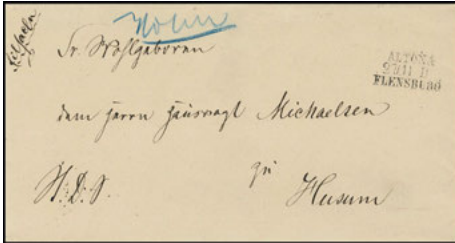 Holm
Sr. Wohlgeboren
ALTONA
FLENSBURG
dem Herrn Hausvogt Michaelsen
zu
H. D. S.
Husum